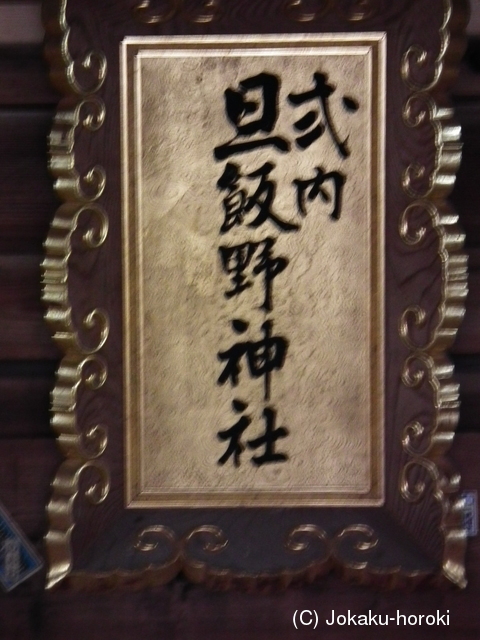 式内
旦飯野神社
(C) Jokaku-horoki